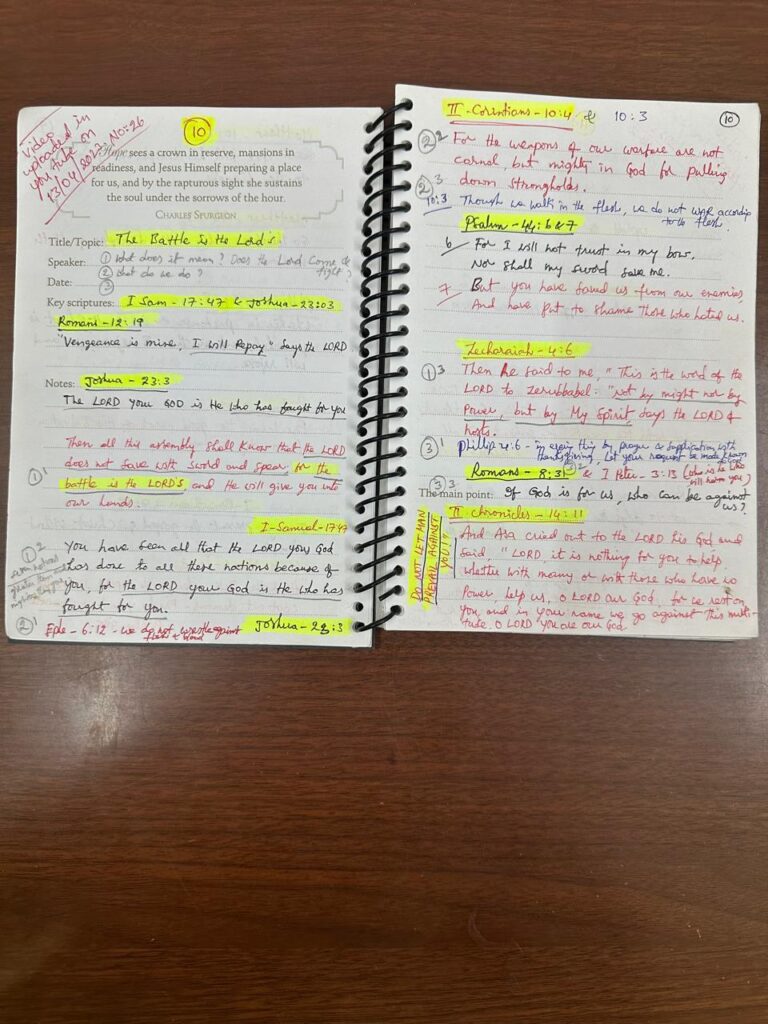 Video
uploaded in
you tube on
13/04/2023 No: 26
10
Hope sees a crown in reserve, mansions in
readiness, and Jesus Himself preparing a place
for us, and by the rapturous sight she sustains
the soul under the sorrows of the hour.
CHARLES SPURGEON
Title/Topic: The Battle Is the Lord's
Speaker: ① What does it mean? Does the Lord Come & fight?
② What do we do?
Date: ③
Key scriptures: I Sam - 17:47 & Joshua - 23:03
Romans - 12:19
"Vengeance is mine, I will Repay" Says the LORD
Notes: Joshua - 23:3
The LORD your GOD is He who has fought for you
Then all this assembly shall know that the LORD
does not save with sword and spear for the
①1 battle is the LORD'S and He will give you into
our hands.
I-Samuel-17:47
①2 You have seen all that the LORD your God
has done to all these nations because of
you, for the LORD your GOD is He who has
fought for you.
②1 Ephe - 6:12 - we do not wrestle against
Joshua - 23:3
II - Corintians - 10:4 & 10:3
10
②2 For the weapons of our warfare are not
carnal, but mighty in God for pulling
②3 down strongholds.
10:3 Though we walk in the flesh, we do not war according
to the flesh.
Psalm - 44:6 & 7
6 For I will not trust in my bow.
Nor shall my sword save me.
7 But you have saved us from our enemies,
And have put to shame those who hated us.
Zechoraiah - 4:6
①3 Then he said to me, "This is the word of the
LORD to Zerubbabel: "Not by might nor by
Power, but by My Spirit Says the LORD of
hosts.
③1 Philip 4:6 - in everything by prayer & supplication with
thanksgiving, let your request be made known
to God
③2
Romans - 8:31 & I Peter - 3:13 (who is he who
will harm you)
③3
The main point: If God is for us, who can be against
us?
II chronicles - 14:11
DO NOT LET MAN
PREVAIL AGAINST
YOU!"
And Asa cried out to the LORD his God and
said, "LORD, it is nothing for you to help,
whether with many or with those who have no
power, help us, O LORD our God, for we rest on
you, and in your name we go against this multi-
tude. O LORD you are our God